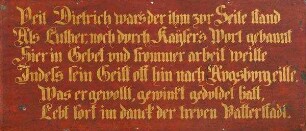 Veit Dietrich wars der ihm zvr Seite stand
Als Luther noch dvrch Kaysers Wort gebannt
Hier in Gebet vnd frommer arbeit weilte
Indess sein Geist oft hin nach Avgsbvrg eilte.
Was er gewollt, gewirkt gedvldet hatt,
Lebt fort im danck der treven Vatterstatt.